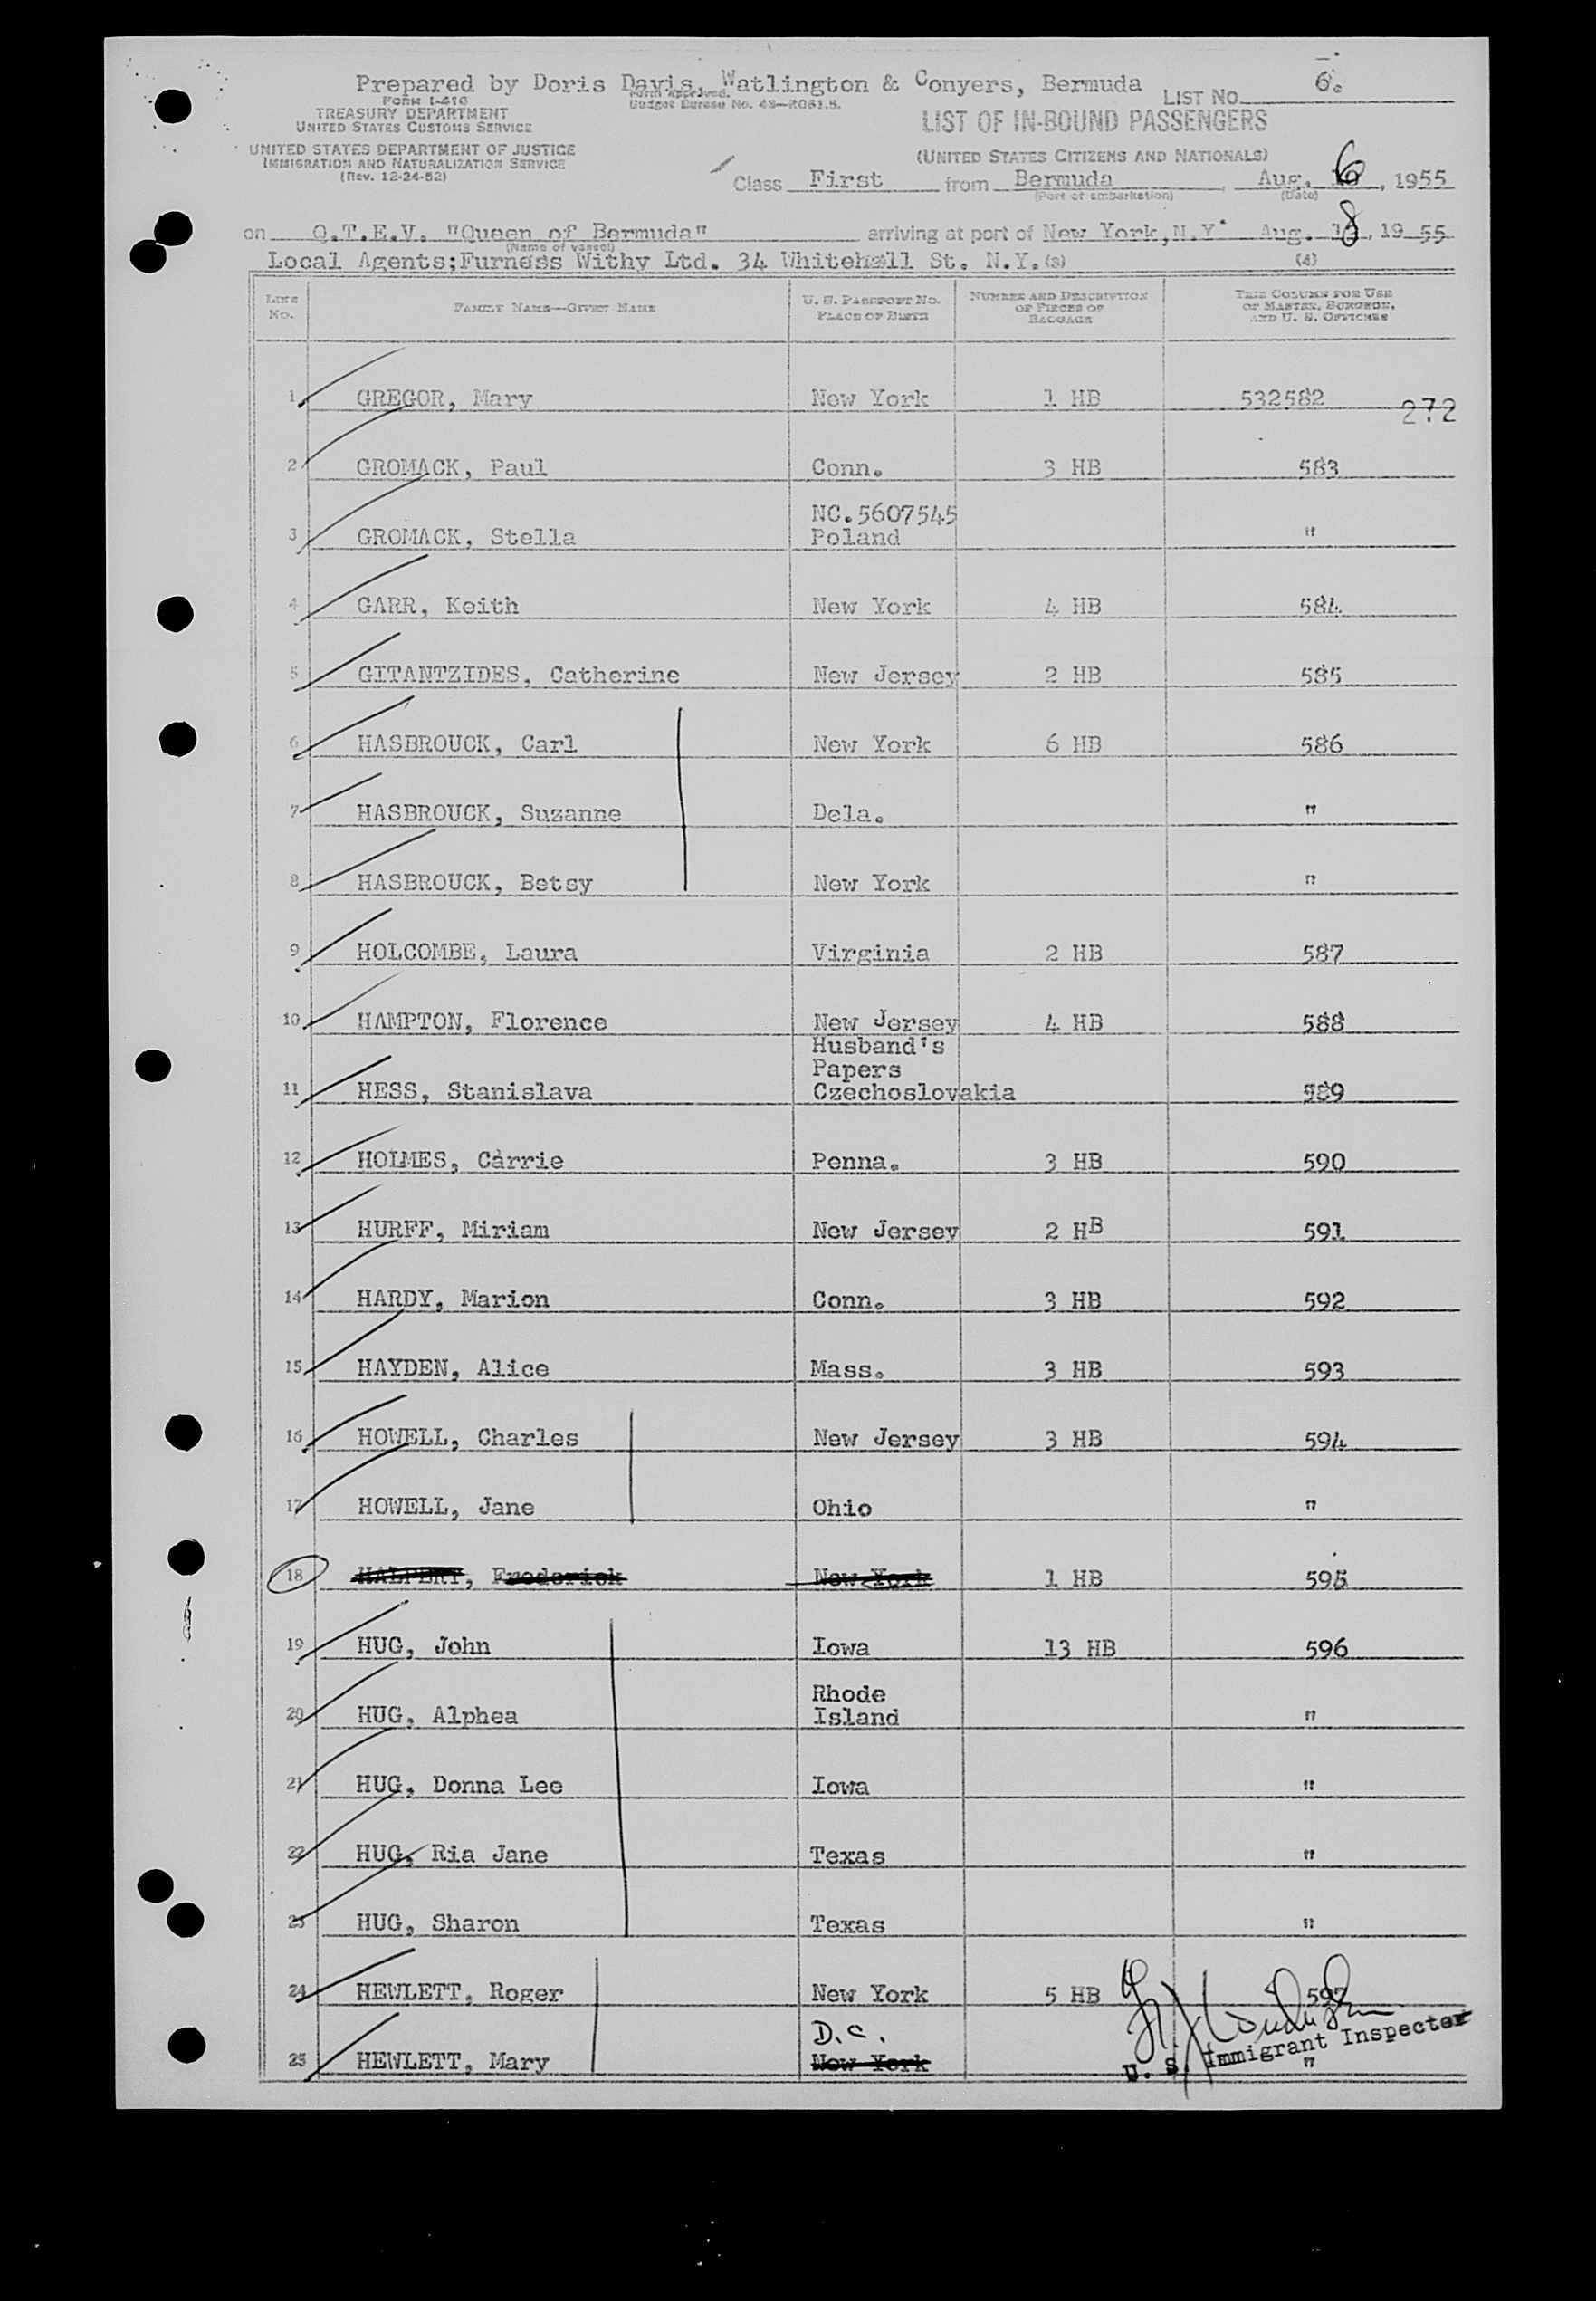 Prepared by Doris Davis, Watlington & Conyers, Bermuda
LIST NO. 6.
Form I-416
TREASURY DEPARTMENT
UNITED STATES CUSTOMS SERVICE
Form Approved.
Budget Bureau No. 43—R061.5.
LIST OF IN-BOUND PASSENGERS
UNITED STATES DEPARTMENT OF JUSTICE
IMMIGRATION AND NATURALIZATION SERVICE
(Rev. 12-24-52)
(UNITED STATES CITIZENS AND NATIONALS)
Class First from Bermuda, Aug. 6, 1955
(Port of embarkation) (Date)
on Q.T.E.V. "Queen of Bermuda" arriving at port of New York, N.Y. Aug. 8, 1955
(Name of vessel)
Local Agents;Furness Withy Ltd. 34 Whitehall St. N.Y. (3) (4)
LINE NO. FAMILY NAME—GIVEN NAME U. S. PASSPORT NO. PLACE OF BIRTH NUMBER AND DESCRIPTION OF PIECES OF BAGGAGE THIS COLUMN FOR USE OF MASTER, SURGEON, AND U. S. OFFICERS
1 GREGOR, Mary New York 1 HB 532582 272
2 GROMACK, Paul Conn. 3 HB 583
3 GROMACK, Stella NC.5607545 Poland "
4 GARR, Keith New York 4 HB 584
5 GITANTZIDES, Catherine New Jersey 2 HB 585
6 HASBROUCK, Carl New York 6 HB 586
7 HASBROUCK, Suzanne Dela. "
8 HASBROUCK, Betsy New York "
9 HOLCOMBE, Laura Virginia 2 HB 587
10 HAMPTON, Florence New Jersey 4 HB 588
11 HESS, Stanislava Husband's Papers Czechoslovakia 589
12 HOLMES, Carrie Penna. 3 HB 590
13 HURFF, Miriam New Jersey 2 HB 591
14 HARDY, Marion Conn. 3 HB 592
15 HAYDEN, Alice Mass. 3 HB 593
16 HOWELL, Charles New Jersey 3 HB 594
17 HOWELL, Jane Ohio "
18 HALPERT, Frederick New York 1 HB 595
19 HUG, John Iowa 13 HB 596
20 HUG, Alphea Rhode Island "
21 HUG, Donna Lee Iowa "
22 HUG, Ria Jane Texas "
23 HUG, Sharon Texas "
24 HEWLETT, Roger New York 5 HB 597
25 HEWLETT, Mary D.C. New York "
U. S. Immigrant Inspector